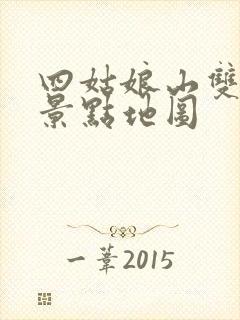 四姑娘山雙
景點地圖
一葦2015